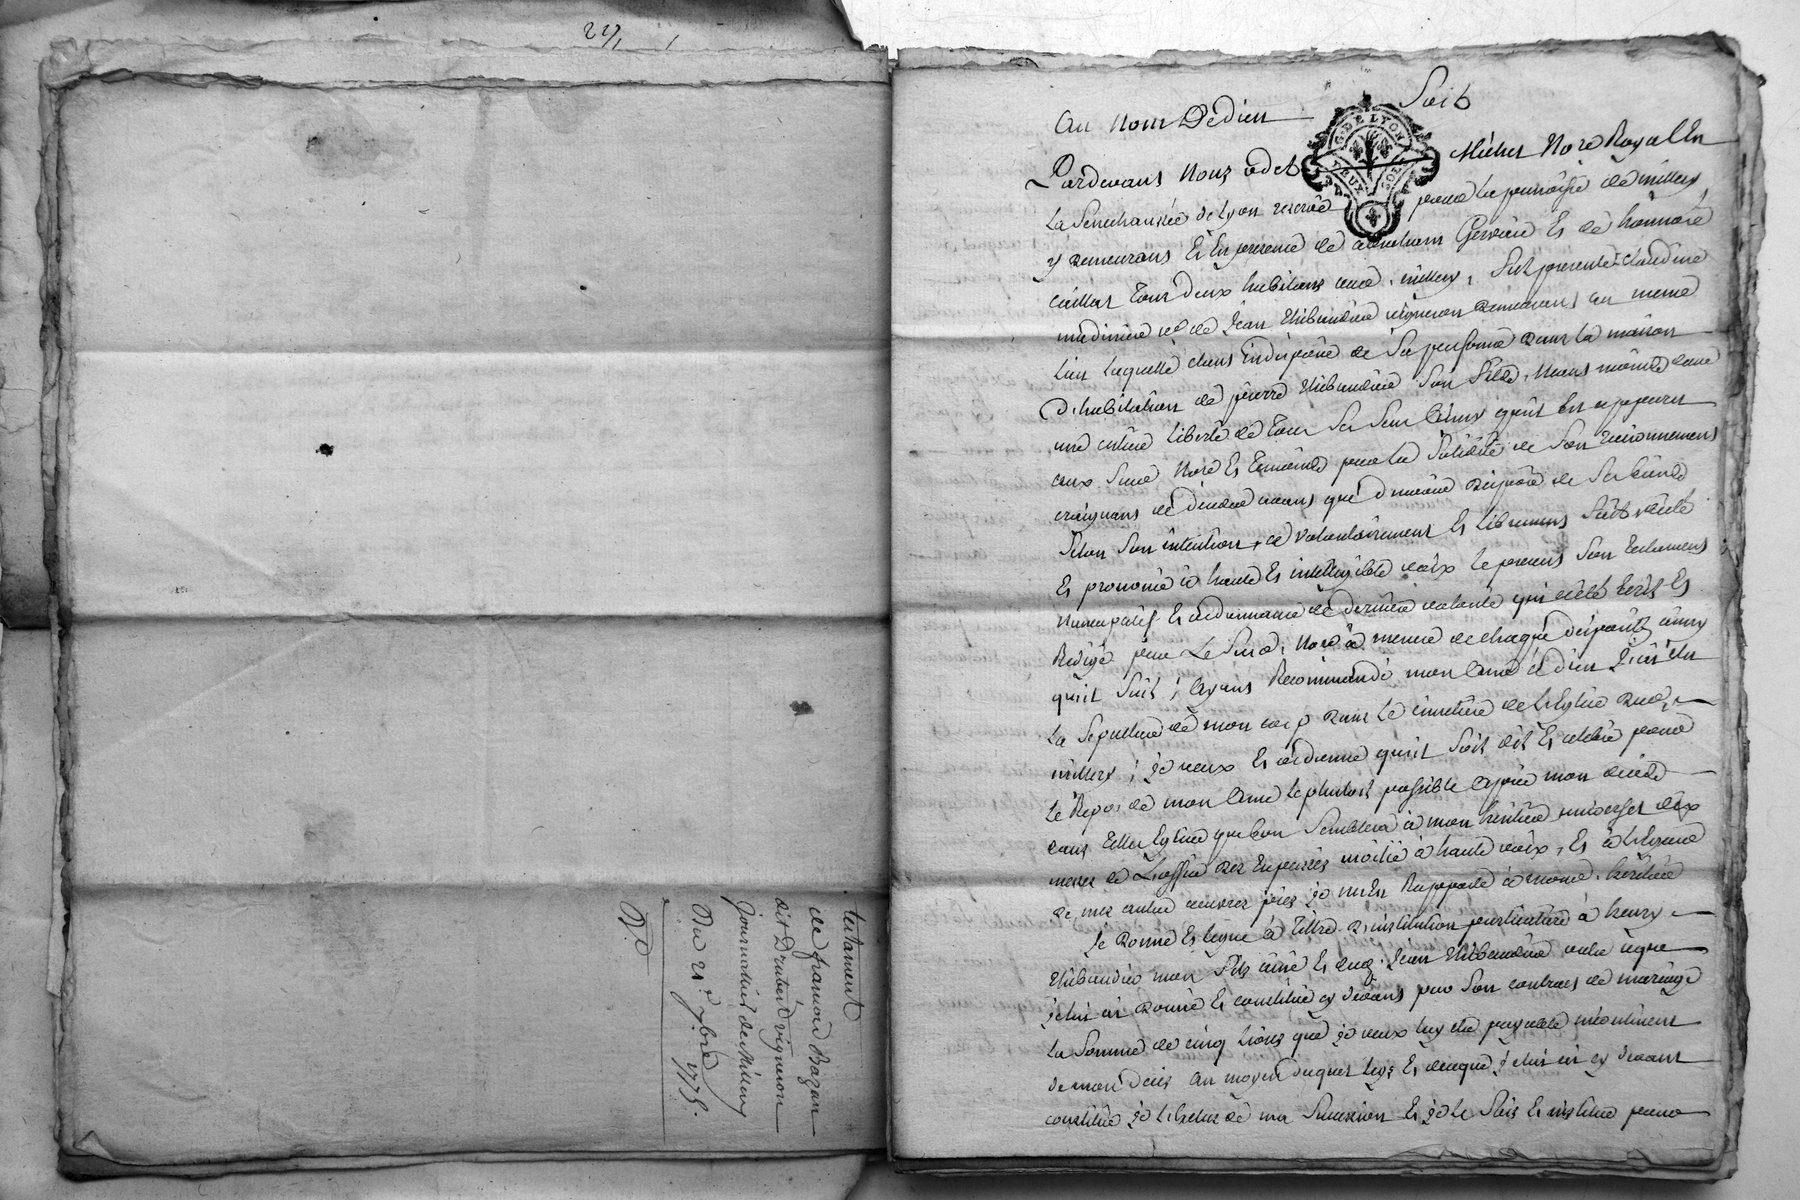 27
testament
de francois Bazan
dit Drubet vigneron
journalier de Millery
Du 21e 7bre 1775.
Au nom De dieu Soit
G. DE LYON
DEUX SOLS
Pardevant Nous Michel Nore Royal En
La Senechaussée de Lyon reservé pour la parroisse de millery
y demeurant Et En presence de Gervais Et de honnoré
tous deux habitants millery, fut presente claudine
de Jean thibaudier vigneron demeurant au meme
Lieu Laquelle etant indisposée de Sa personne dans La maison
D'habitation de pierre thibaudier Son fils, neans moins dans
une entiere Liberté de tous Ses Sens Ainsy qu'il En a apparut
aux Susd Nore Et temoins par la Solidité de Son raisonnement
craignant de deceder avant que d'avoir disposé de Ses biens
Selon Son intention, a volontairement Et librement fait
Et prononcé à haute Et intelligible voix Le present Son testament
Nuncupatif Et ordonnance de derniere volonté qui a été Ecrit Et
Redigé par Le Susd. Nore à mesure de chaque ainsy
quil Suit; Ayant Recommandé mon Ame à dieu
La Sepulture de mon corp dans Le cimetière de L'Eglise Dud.
millery; je veux Et ordonne quil Soit dit Et celebré pour
Le Repos de mon Ame Le plutost possible Après mon deceds
dans telle Eglise que bon Semblera à mon heritier universel dix
messes de L'office des trepassés moitié à haute voix, Et à L'egard
de mes autres oeuvres pies je m'En Rapporte à mond. heritier
Je Donne Et legue à tittre D'institution particuliere à henry
thibaudier mon fils ainé Et dud. Jean thibaudier outre ce que
je luy ai Donné Et constitué cy devant par Son contract de mariage
La Somme de cinq Livres que je veux luy etre payable incontinent
de mon deces Au moyen duquel legs Et de ce que je luy ai cy devant
constitué je L'exclus de ma Succession Et je Le fais Et institue pour